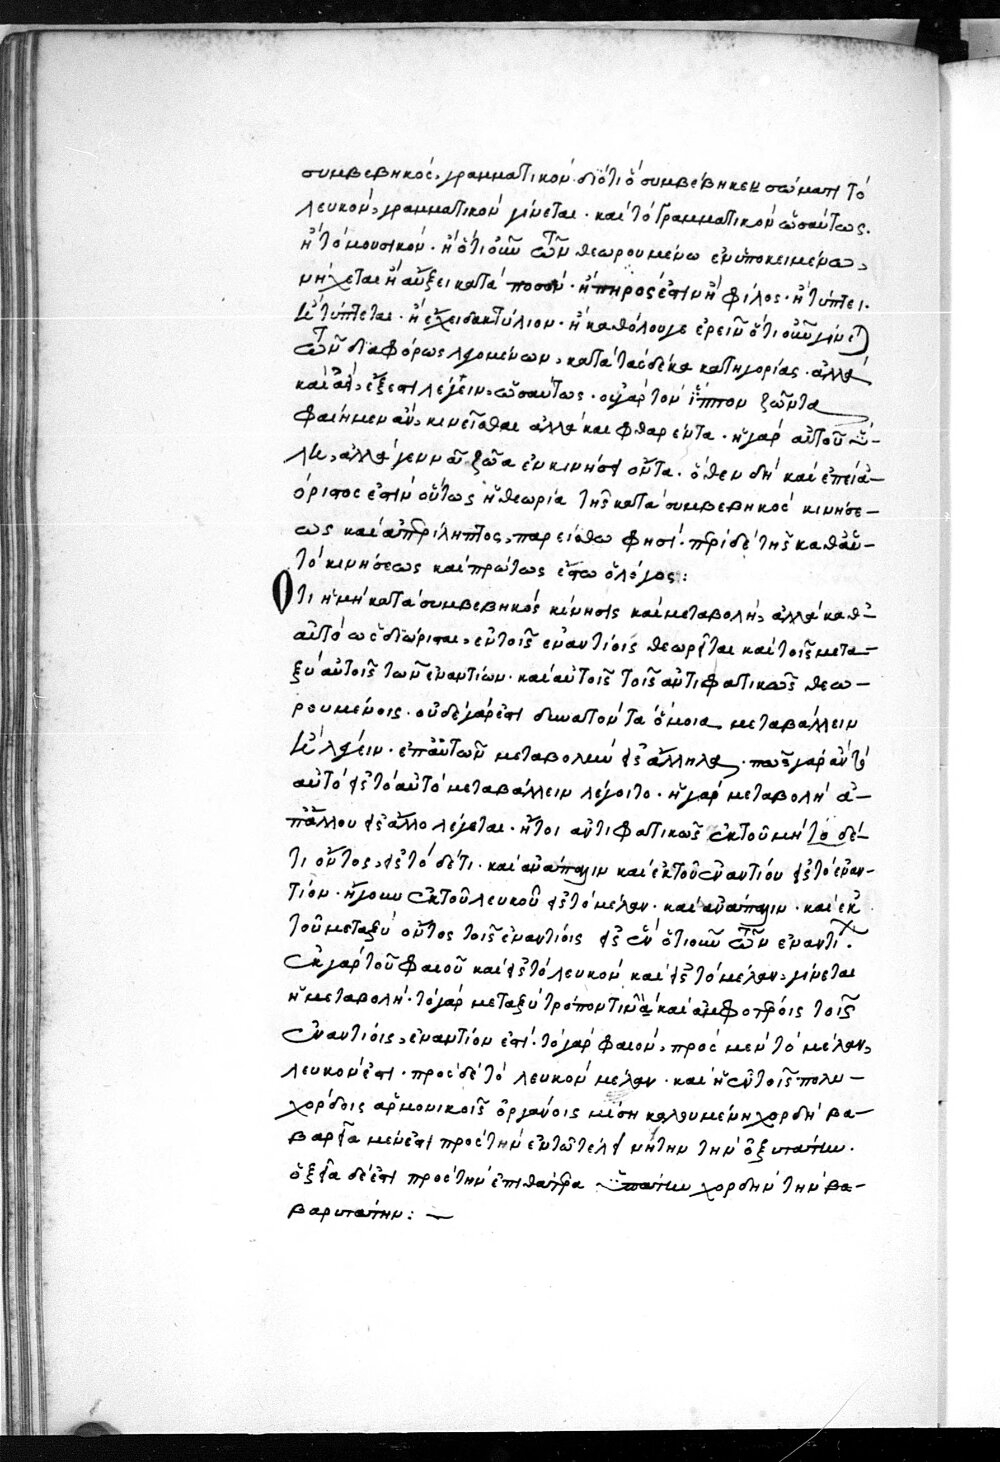 συμβεβηκός, γραμματικόν. διότι ὃ συμβέβηκεν σώματι τὸ
λευκόν, γραμματικόν γίνεται. καὶ τὸ γραμματικόν ὡσαύτως.
ἢ τὸ μουσικόν. ἢ ὁτιοῦν τῶν θεωρουμένω ἐν ὑποκειμένω,
νήχεται ἢ αὔξει κατὰ ποσόν. ἢ πηρός ἐστιν ἢ φίλος. ἢ τύπτει.
ἢ τύπτεται. ἢ ἔχει δακτύλιον. ἢ καθόλου γε ἐρεῖν ὅτι οὖν γίνεται
τῶν διαφόρως λεγομένων, κατὰ τὰς δέκα κατηγορίας. ἀλλὰ
καὶ ἔξεστι λέγειν, ὡσαύτως. οὐ γὰρ τὸν ἵππον ζῶντα
φαίημεν ἂν, κινεῖσθαι ἀλλὰ καὶ φθαρέντα. ἡ γὰρ αὐτοῦ ὕ-
λη, ἀλλὰ γεννᾶ ζῶα ἐν κινήσει ὄντα. ὅθεν δὴ καὶ ἐπεὶ ἀ-
όριστος ἐστὶν οὕτως ἡ θεωρία τῆς κατὰ συμβεβηκός κινήσε-
ως καὶ ἀπερίληπτος, παρείσθω φησί. περὶ δὲ τῆς καθ' αὑ-
τὸ κινήσεως καὶ πρώτως ἔστω ὁ λόγος:
Ὅτι ἡ μὴ κατὰ συμβεβηκός κίνησις καὶ μεταβολή, ἀλλὰ καθ'
αὑτὸ ὡς διώρισται, ἐν τοῖς ἐναντίοις θεωρεῖται καὶ τοῖς μετα-
ξὺ αὐτοῖς τῶν ἐναντίων. καὶ αὐτοῖς τοῖς ἀντιφατικῶς θεω-
ρουμένοις. οὐδὲ γάρ ἐστι δυνατὸν τὰ ὅμοια μεταβάλλειν
ἢ λέγειν. ἐπ' αὐτῶν μεταβολὴν εἰς ἄλληλα. πῶς γὰρ ἂν τὸ
αὐτὸ εἰς τὸ αὐτὸ μεταβάλλειν λέγοιτο. ἡ γὰρ μεταβολὴ ἀ-
π' ἄλλου εἰς ἄλλο λέγεται. ἤτοι ἀντιφατικῶς ἐκ τοῦ μὴ τὸ δέ-
τι ὄντος, εἰς τὸ δέ τι. καὶ ἀνάπαλιν καὶ ἐκ τοῦ ἐναντίου εἰς τὸ ἐναν-
τίον. ἤγουν ἐκ τοῦ λευκοῦ εἰς τὸ μέλαν. καὶ ἀνάπαλιν. καὶ ἐκ
τοῦ μεταξὺ ὄντος τοῖς ἐναντίοις εἰς ἓν ὁτιοῦν τῶν ἐναντίων.
ἐκ γὰρ τοῦ φαιοῦ καὶ εἰς τὸ λευκόν καὶ εἰς τὸ μέλαν, γίνεται
ἡ μεταβολή. τὸ γὰρ μεταξὺ τρόπον τινὰ καὶ ἀμφοτέροις τοῖς
ἐναντίοις, ἐναντίον ἐστί. τὸ γὰρ φαιόν, πρὸς μὲν τὸ μέλαν,
λευκόν ἐστι. πρὸς δὲ τὸ λευκόν μέλαν. καὶ ἡ ἐν τοῖς πολυ-
χόρδοις ἁρμονικοῖς ὀργάνοις μέση καλουμένη χορδὴ βα-
βαρεῖα μέν ἐστι πρὸς τὴν ἐν τῶ τέλει νήτην τὴν ὀξυτάτην.
ὀξεῖα δέ ἐστι πρὸς τὴν ἐπὶ θάτερα ὑπάτην χορδὴν τὴν βα-
βαρυτάτην: